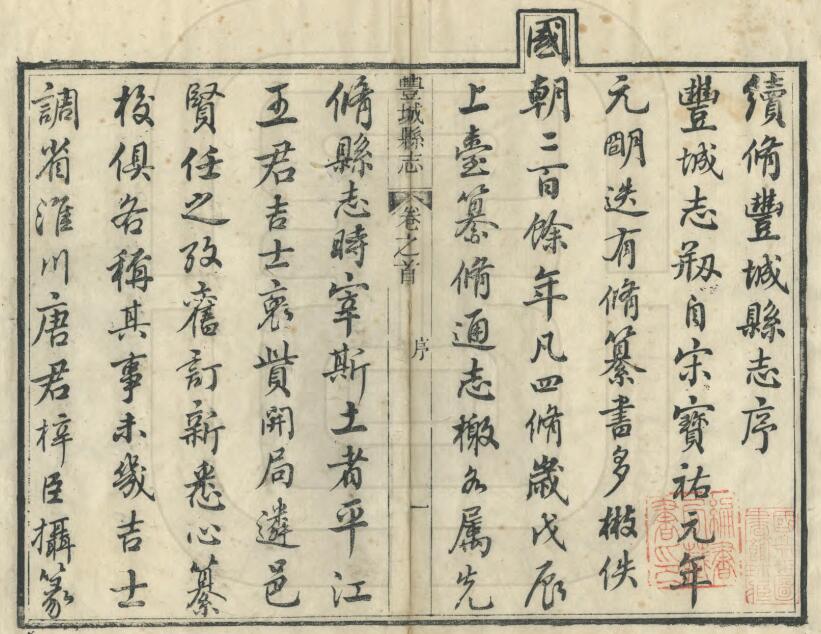 續脩豐城縣志序
豐城志剏自宋寶祐元年
元明迭有脩纂書多散佚
國朝二百餘年凡四脩歲戊辰
上臺纂脩通志檄各属先
豐城縣志 卷之首 序 一
脩縣志時宰斯土者平江
王君吉士裒貲開局遴邑
賢任之攷舊訂新悉心纂
校俱各稱其事未幾吉士
調省淮川唐君梓臣攝篆